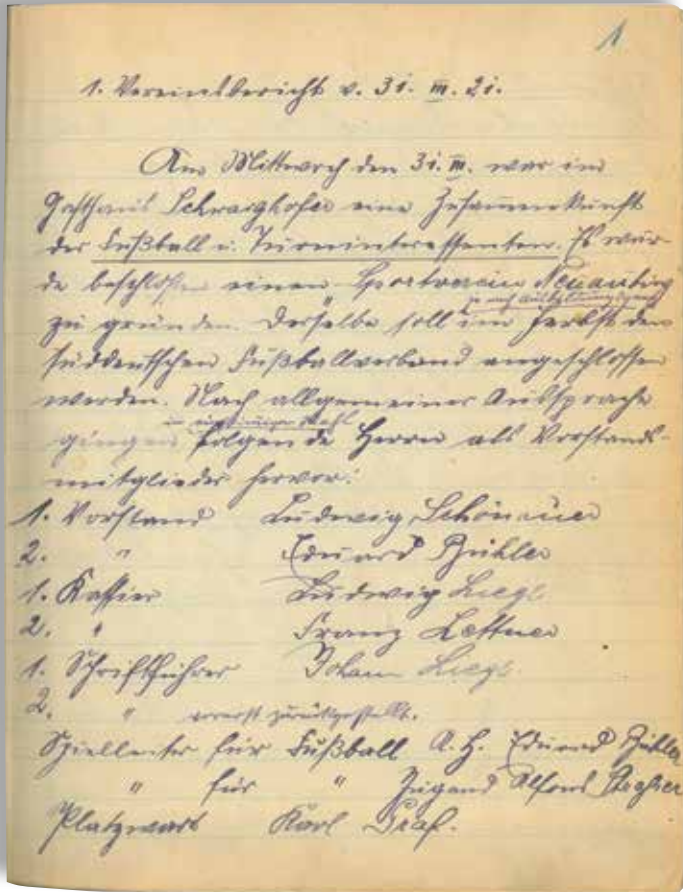 1
1. Vereinsbericht v. 31. III. 21.
Am Mittwoch den 31. III. war im
Gasthaus Schwaighofer eine Zusammenkunft
der Fußball u. Turninteressenten. Es wur-
de beschlossen einen Sportverein Neuaubing
zu gründen. Derselbe soll im Herbst dem
je nach
süddeutschen Fußballverband angeschlossen
werden. Nach allgemeiner Aussprache
gingen folgende Herrn als Vorstands-
mitglieder hervor:
1. Vorstand Ludwig Schönauer
2. " Eduard Bühler
1. Kassier Ludwig Liegl
2. " Franz Lettner
1. Schriftführer Johann Liegl
2. " vorerst zurückgestellt.
Spielleiter für Fußball A. H. Eduard Bühler
" für " Jugend Alfons
Platzwart Karl Graf.